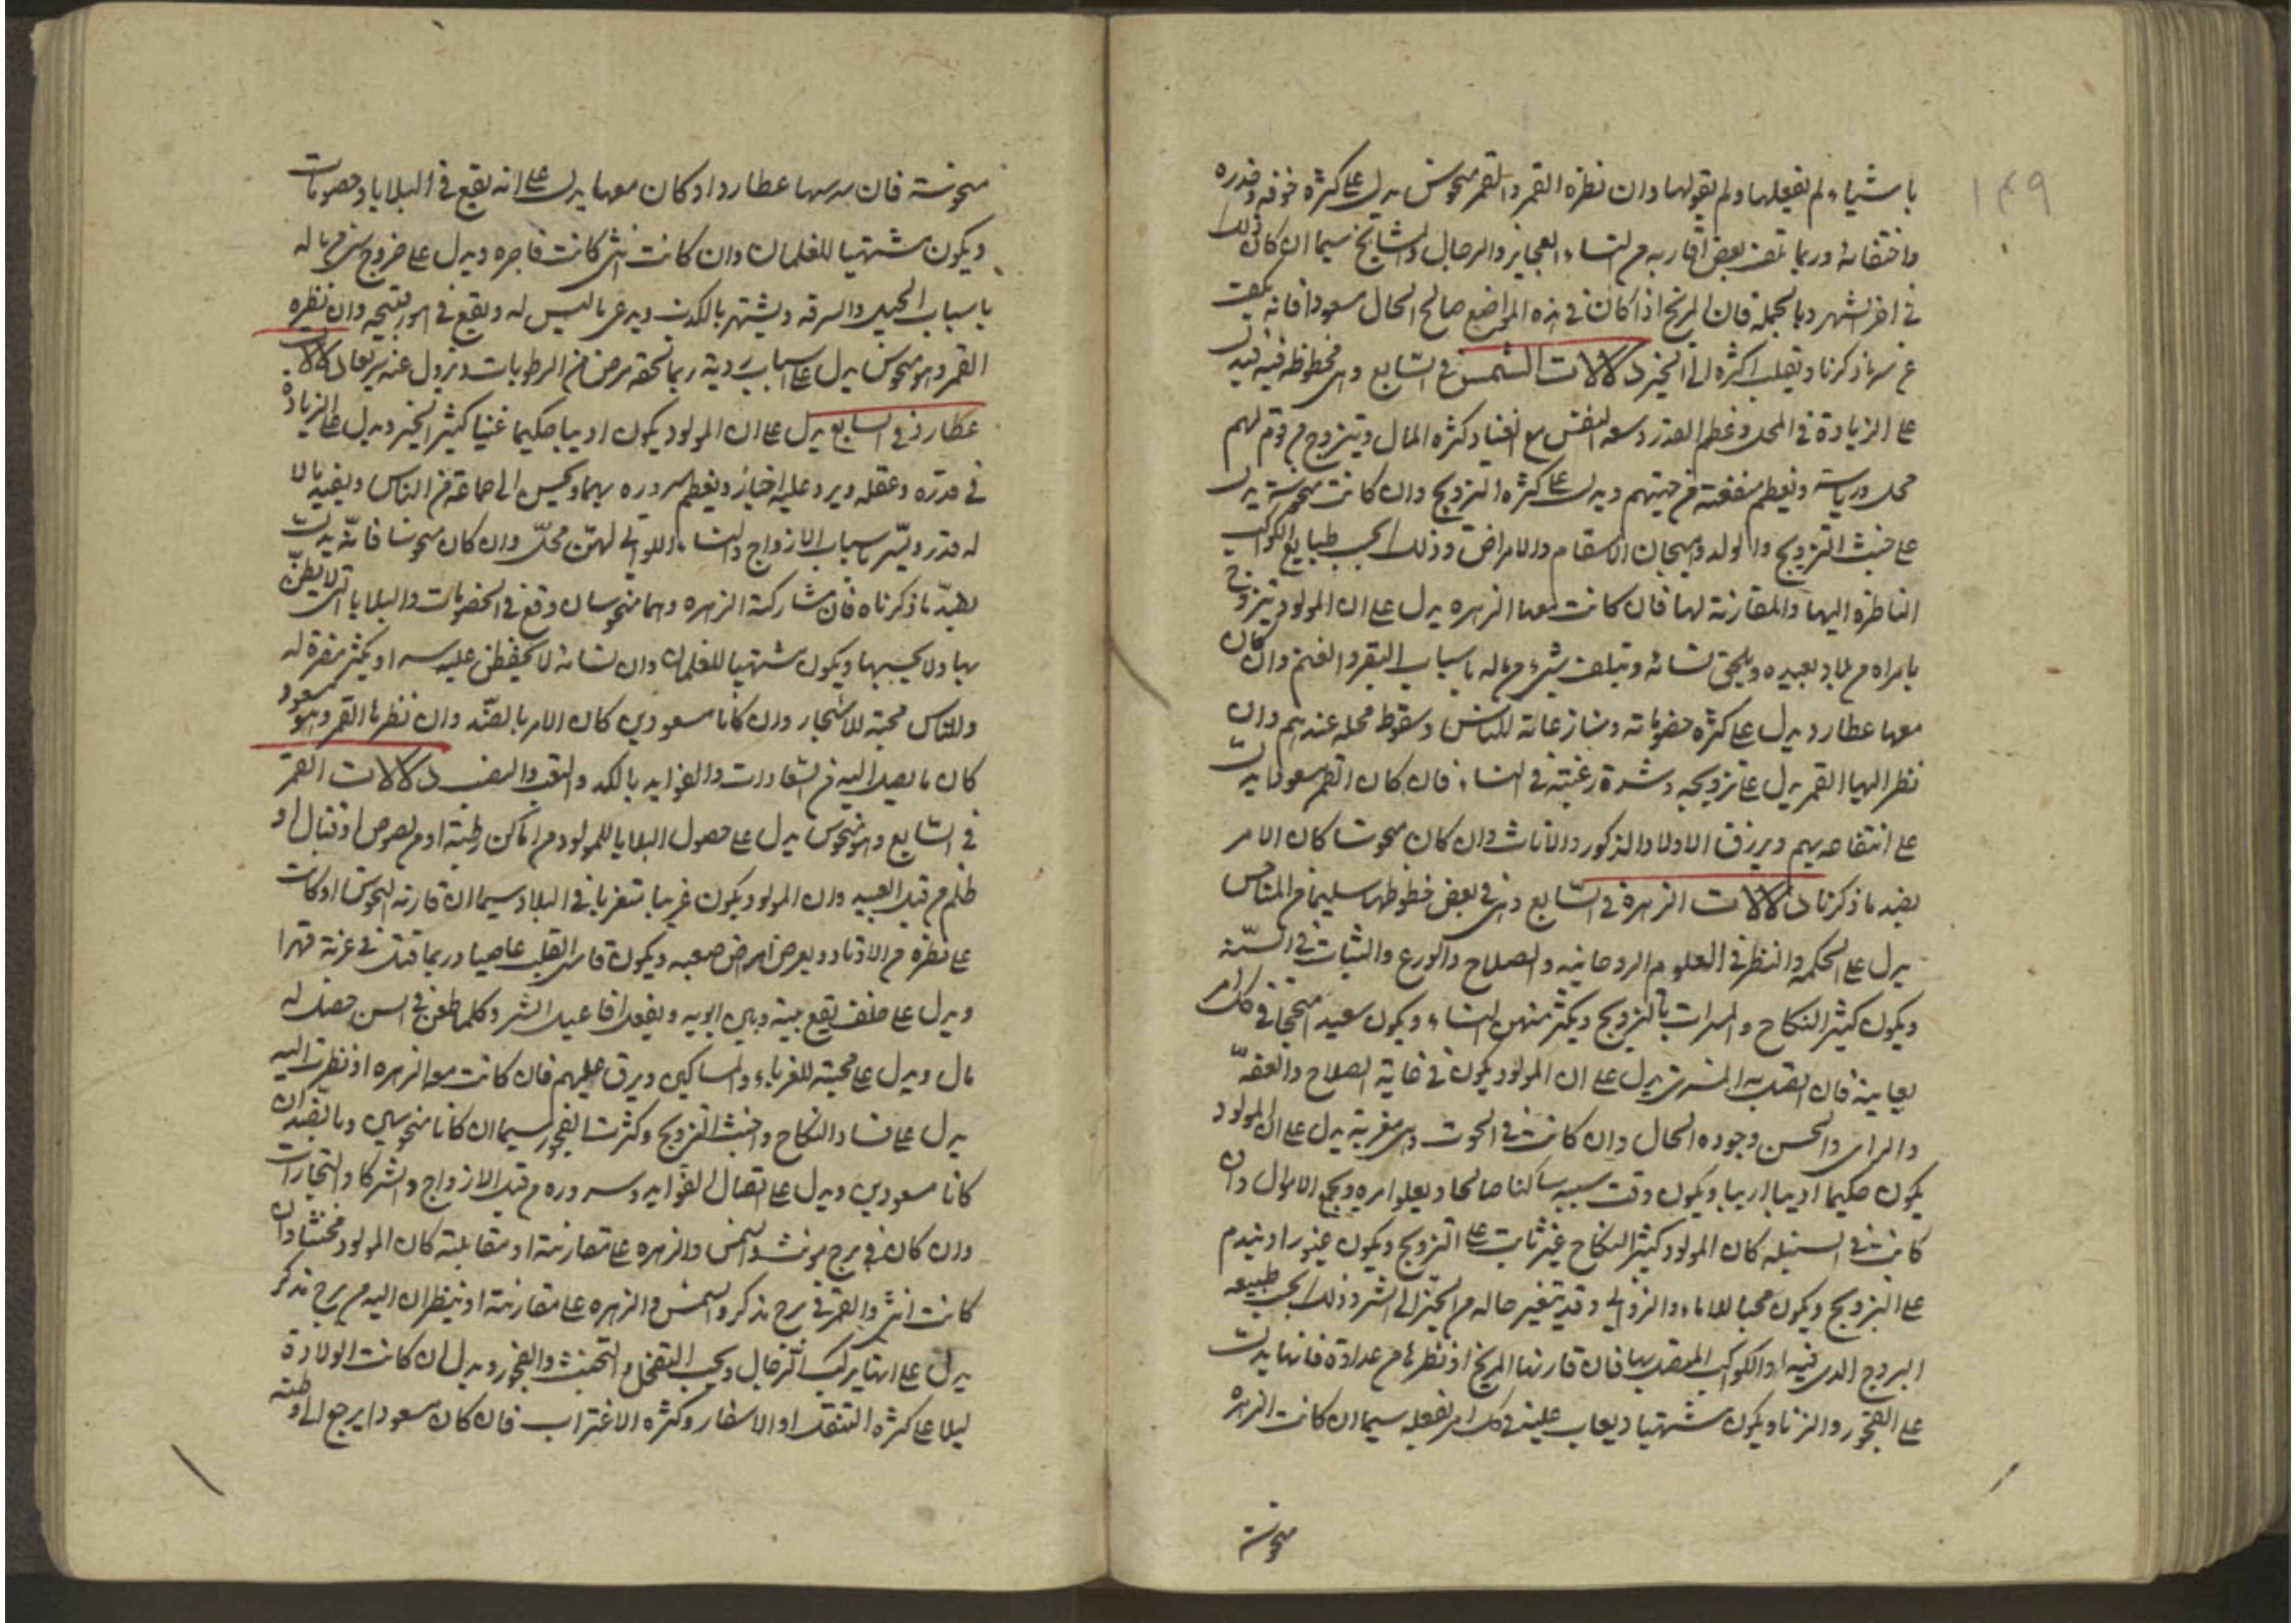 ١٤٩
باشياء لم يفعلها ولم يقولها وان نظره القمر والقمر منحوس يدل على كثرة خوفه وقدره
واختفائه وربما تلف بعض اقاربه من النساء العجايز والرجال والمشايخ سيما ان كان ذلك
في اخر الشهر وبالجملة فان المريخ اذا كان في هذه المواضع صالح الحال مسعودا فانه يكف
عن شر ما ذكرنا ويقلب اكثره الى الخير دلالات الشمس في السابع وهي محظوظه فيه تدل
على الزيادة في المحل وعظم القدر وسعه النفس مع الغنا وكثره المال ويتزوج من قوم لهم
محل ورياسة وتعظم منفعته من جهتهم ويدل على كثره التزويج وان كانت منحوسة يدل
على خبث التزويج والولد وهيجان الاسقام والامراض وذلك بحسب طبايع الكواكب
الناظره اليها والمقارنة لها فان كانت معها الزهره يدل على ان المولود يتزوج
بامراه من بلاد بعيده ويلحق نسائه ويتلف شيء من ماله باسباب البقر والغنم وان كان
معها عطارد يدل على كثره خصوماته ومنازعاته للناس وسقوط محله عندهم وان
نظر اليها القمر يدل على تزويجه وشدة رغبته في النساء فان كان القمر مسعودا يدل
على انتفاعه بهم ويرزق الاولاد الذكور والاناث وان كان منحوسا كان الامر
بضد ما ذكرنا دلالات الزهرة في السابع وهي في بعض حظوظها سليمة من المناحس
يدل على الحكمه والنظر في العلوم الروحانيه والصلاح والورع والثبات في السنة
ويكون كثير النكاح والمسرات بالتزويج ويكثر منهن النساء ويكون سعيدا منجحا في كل امر
يعاينه فان اتصل به المشتري يدل على ان المولود يكون في غاية الصلاح والعفة
والراي والحسن وجوده الحال وان كانت في الحوت وهي مغربة يدل على ان المولود
يكون حكيما اديبا اريبا ويكون وقت سببه ساكنا صالحا ويعلو امره ويجمع الاموال وان
كانت في السنبله كان المولود كثير النكاح غير ثابت على التزويج ويكون غيورا ويندم
على التزويج ويكون محبا للاماء والزواني وقد يتغير حاله من الخير الى الشر وذلك بحسب طبيعه
البروج الذي فيه او الكواكب المتصل بها فان قارنها المريخ او نظرها من عداوة فانها يدل
على الفجور والزنا ويكون مشتهيا ويعاب عليه في كل امر يفعله سيما ان كانت الزهرة
منحوسة
منحوسة فان مدسها عطارد او كان معها يدل على انه يقع في البلايا وخصومات
ويكون مشتهيا للغلمان وان كانت انثى كانت فاجره ويدل على خروج شيء من ماله
باسباب الحيل والسرقه ويشتهر بالكذب ويدعي ما ليس له ويقع في امور قبيحه وان نظره
القمر وهو منحوس يدل على اسباب ردية ربما لحقه مرض من الرطوبات ويزول عنه سريعا دلالات
عطارد في السابع يدل على ان المولود يكون اديبا حكيما غنيا كثير الخير ويدل على الزيادة
في قدره وعقله ويرد عليه اخبار ويعظم سروره بهما ويجلس الى جماعة من الناس ويفيد مالا
له قدر ويسر باسباب الازواج والنساء اللواتي لهن محل وان كان منحوسا فانه يدل
بضد ما ذكرناه فان شاركته الزهره وهما منحوسان وقع في الخصومات والبلايا التي لا يظن
بها ولا يحسبها ويكون مشتهيا للغلمان وان نسائه لا يحفظن عليه سرا ويكثر مضرة له
وللناس محبته للاشجار وان كانا مسعودين كان الامر بالضد وان نظرها القمر وهو مسعود
كان ما يصل اليه من السعادات والفوايد بالكد والتعب والنصب دلالات القمر
في السابع وهو منحوس يدل على حصول البلايا للمولود من اماكن رطبة او من لصوص او قتال او
ظلم من قبل العبيد وان المولود يكون غريبا متغربا في البلاد سيما ان قارنه النحوس او كانت
على نظره من الاوتاد ويعرض امراض صعبه ويكون قاسي القلب عاصيا وربما قتل في غربة قهرا
ويدل على خلف يقع بينه وبين ابويه ويفعل افاعيل الشر وكلما طعن في السن حصل له
مال ويدل على محبته للغرباء والمساكين ويرق عليهم فان كانت معه الزهره او نظرت اليه
يدل على فساد النكاح وخبث التزويج وكثرت الفجور سيما ان كانا منحوسين وبالضد ان
كانا مسعودين ويدل على اتصال الفوايد وسروره من قبل الازواج والشركا والتجارات
وان كان في برج مونث والشمس والزهره على مقارنته او مقابلته كان المولود مخنثا وان
كانت انثى والقمر في برج مذكر والشمس والزهره على مقارنته او ينظران اليه من برج مذكر
يدل على انها يركب الرجال ويحب التفحل والتخنث والفجور ويدل ان كانت الولادة
ليلا على كثره التنقل او الاسفار وكثره الاغتراب فان كان مسعودا يرجع الى وطنه